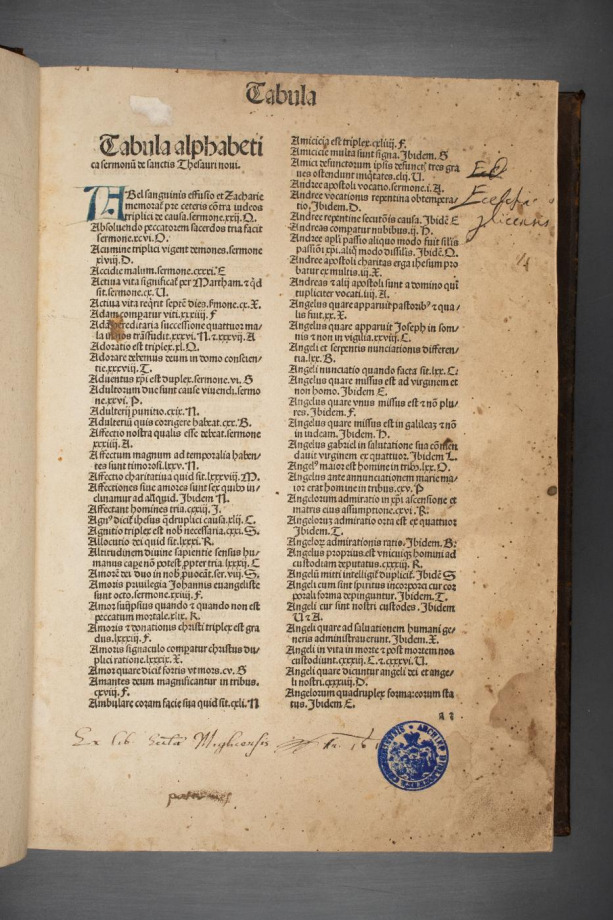 Tabula
Tabula alphabeti
ca sermonū de sanctis Thesauri noui.
ABel sanguinis effusio et Zacharie
memorat̄ pre ceteris cōtra iudeos
triplici de causa. sermone. xxij. Q.
Absoluendo peccatorem sacerdos tria facit
sermone. xc vi. O.
Acumine triplici vigent demones. sermone
xlviij. D.
Accidie malum. sermone. cxxxi. E
Actiua vita significat᷑ per Martham. ⁊ q̄d
sit. sermone. cx. U.
Actiua vita reqrit septē dies. s̄mone. cx. X.
Adam compatur viti. xxxiiij. F
hereditaria successione quattuor ma-
la in nos trāsfudit. xxxvi. N. ⁊ xxxvij. A
Adoratio est triplex. xl. O.
Adorare debemus deum in domo conscien-
tie. xxxviij. T.
Aduentus xp̄i est duplex. sermone. vi. S
Adultorum due sunt cause viuendi. sermo
ne. xxvi. P.
Adulterij punitio. cxix. N.
Adulterū quis corrigere habeat. cxx. B.
Affectio nostra qualis esse debeat. sermone
xxxiiij. A.
Affectum magnum ad temporalia haben-
tes sunt timorosi. lxxv. N.
Affectio charitatiua quid sit. lxxxviij. M.
Affectiones siue amores sunt sex quibꝰ in-
clinamur ad aliquid. Ibidem N.
Affectant homines tria. cxxiij. I.
Agnꝰ dicit᷑ ihesus q̄druplici causa. xlij. C.
Agnitio triplex est nob̄ necessaria. cxxi. S.
Allocutio dei quid sit. lxxxi. R.
Altitudinem diuine sapientie sensus hu-
manus cape nō potest. ꝓpter tria. lxxxij. C
Amorē dei duo in nob̄ ꝓuocāt. ser. viij. S.
Amoris priuilegia Johannis euangeliste
sunt octo. sermone. xxiij. F.
Amor suiip̄sius quando ⁊ quando non est
peccatum mortale. xlix. R.
Amoris ⁊ donationis christi triplex est gra
dus. lxxxiij. F.
Amoris signaculo compatur christus du-
plici ratione. lxxxix. X.
Amor quare dicit᷑ fortis vt mors. cv. S
Amantes deum magnificantur in tribus.
cxviij. F.
Ambulare coram facie sua quid sit. cxli. N
Amicicia est triplex. cxliiij. F.
Amicicie multa sunt signa. Ibidem. S
Amici defunctorum ipsis defunct᷑ tres gra
ues ostendunt iniq̄tates. clij. U.
Andree apostoli vocatio. sermone. i. A.
Andree vocationis repentina obtempera-
tio. Ibidem. D.
Andree repentine secutōis causa. Ibidē E
Andreas compatur nubibus. ij. H.
Andree apl̄i passio aliquo modo fuit sil̄is
passiōi xp̄i. aliq̄ modo dissil̄is. Ibidē. Q.
Andree apostoli charitas erga ihesum pro
batur ex multis. iij. X.
Andreas ⁊ alij apostoli sunt a domino qui
tupliciter vocati. iiij. A.
Angelus quare apparuit pastoribꝰ ⁊ qua-
lis fuit. xx. X.
Angelus quare apparuit Joseph in som-
nis ⁊ non in vigilia. xxviij. C.
Angeli et serpentis nunciationis differen-
tia. lxx. B.
Angeli nunciatio quando facta sit. lxx. C.
Angelus quare missus est ad virginem et
non homo. Ibidem E.
Angelus quare vnus missus est ⁊ nō plu-
res. Ibidem. F.
Angelus quare missus est in galileaȝ ⁊ nō
in iudeam. Ibidem. H.
Angelus gabriel in salutatione sua cōmen
dauit virginem ex quattuor. Ibidem L.
Angelꝰ maior est homine in tribꝰ. lxx. O.
Angelus ante annunciationem marie ma-
ior erat homine in tribus. cxv. P
Angelorum admiratio in xp̄i ascensione et
matris eius assumptione. cxvi. R.
Angeloruȝ admiratio orta est ex quattuor
Ibidem. T.
Angeloȝ admirationis ratio. Ibidem. B.
Angelus proprius est vnicuiq̄ homini ad
custodiam deputatus. cxxxiij. R.
Angelū miti intelligit᷑ duplicit᷑. Ibidē S
Angeli cum sint spiritus incorporei cur cor
porali forma depinguntur. Ibidem. T.
Angeli cur sint nostri custodes. Ibidem
U ⁊ A.
Angeli quare ad saluationem humani ge-
neris administrauerunt. Ibidem. X.
Angeli in vita in morte ⁊ post mortem nos
custodiunt. cxxxiij. C. ⁊. cxxxvi. U.
Angeli quare dicuntur angeli dei et ange-
li nostri. cxxxiij. D.
Angelorum quadruplex forma: eorum sta
tus. Ibidem E.
Ex lib.